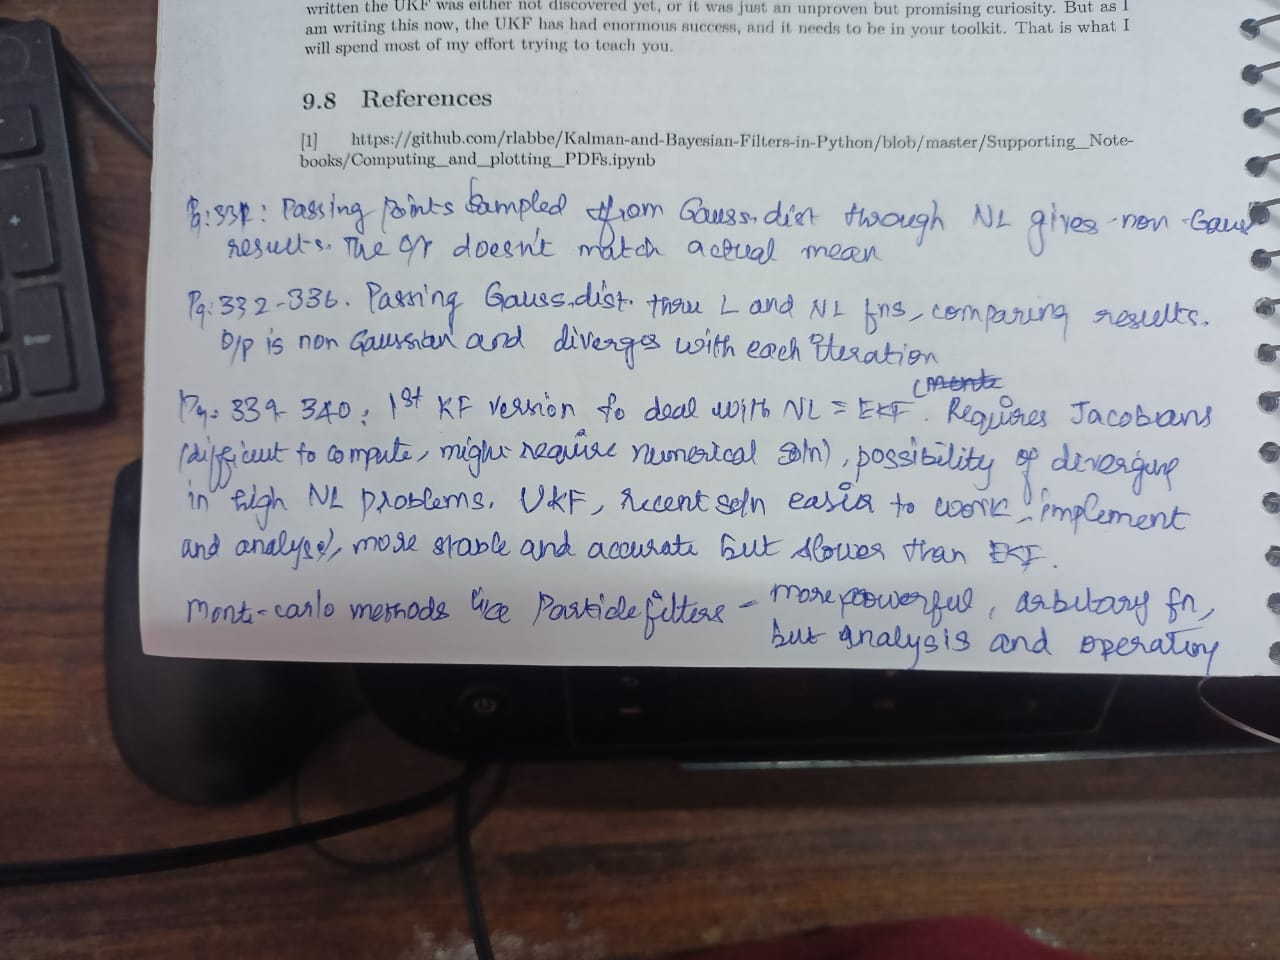 written the UKF was either not discovered yet, or it was just an unproven but promising curiosity. But as I
am writing this now, the UKF has had enormous success, and it needs to be in your toolkit. That is what I
will spend most of my effort trying to teach you.
9.8 References
[1] https://github.com/rlabbe/Kalman-and-Bayesian-Filters-in-Python/blob/master/Supporting_Note-
books/Computing_and_plotting_PDFs.ipynb
Passing points sampled from Gauss. dist through NL gives non-Gauss
results. The doesn't match actual mean
Pg: 332-336. Passing Gauss. dist. thru L and NL fns, comparing results.
O/p is non Gaussian and diverges with each iteration
Pg: 339-340: 1st KF version to deal with NL = EKF. Requires Jacobians
(difficult to compute, might require numerical soln), possibility of diverging
in high NL problems. UKF, recent soln easier to work, implement
and analyse, more stable and accurate but slower than EKF.
Monte-carlo methods like Particle filters - more powerful, arbitary fn,
but analysis and operation